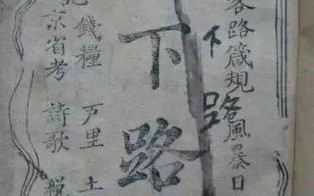 客路箴規風暴日
下路
下路
錢糧 里 土
京省考 詩歌 税